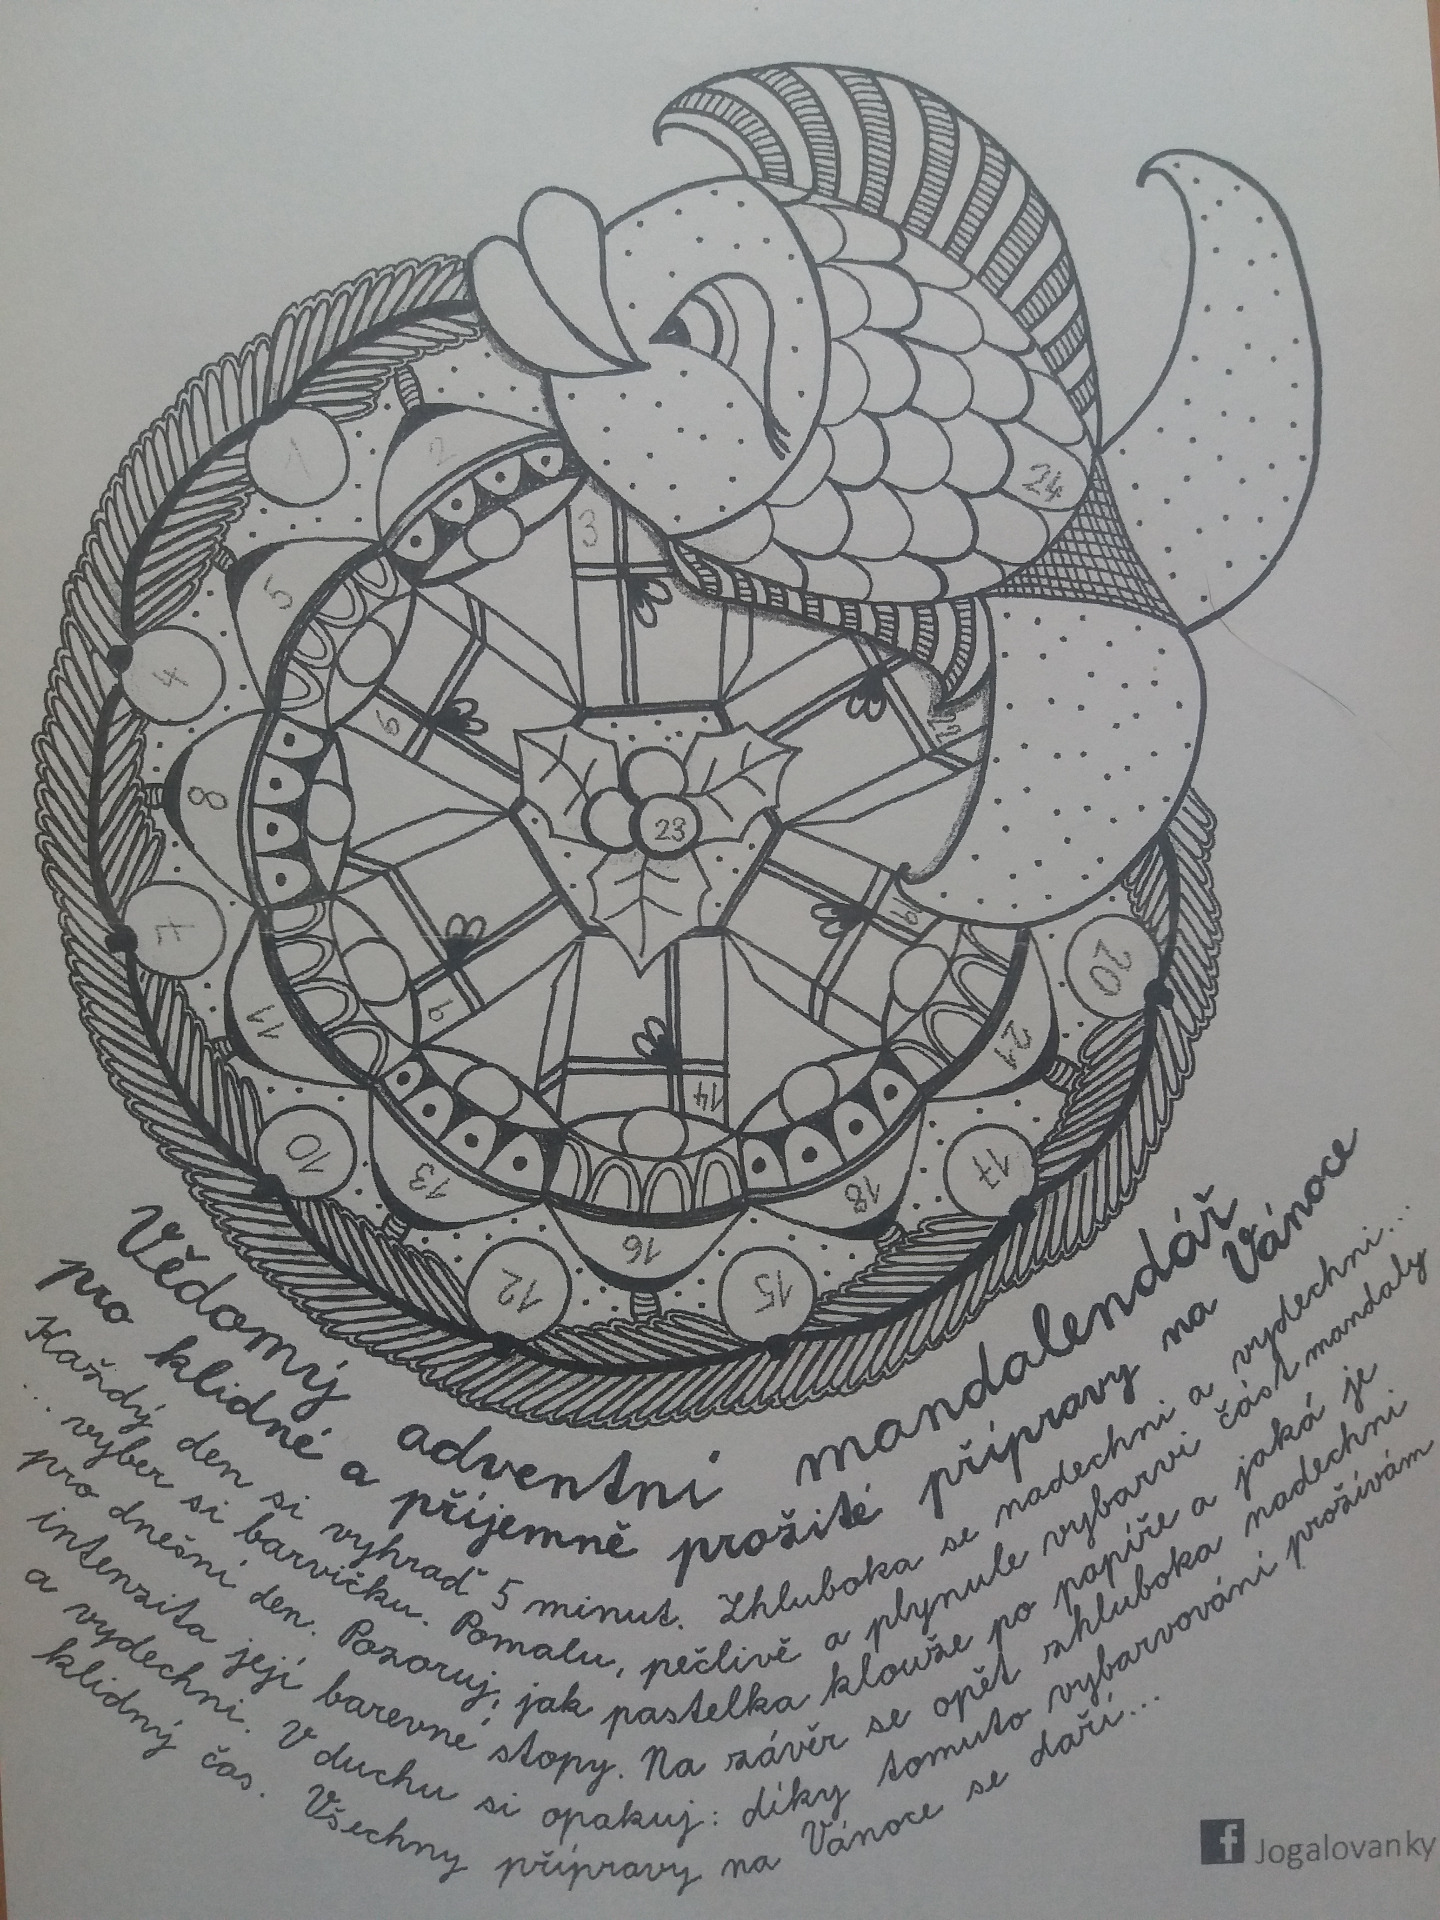 1
2
3
24
5
4
6
8
23
7
9
19
20
11
14
21
10
13
18
17
16
12
15
Vědomý adventní mandalendář
pro klidné a příjemně prožité přípravy na Vánoce
Každý den si vyhraď 5 minut. Zhluboka se nadechni a vydechni...
...vyber si barvičku. Pomalu, pečlivě a plynule vybarvi část mandaly
pro dnešní den. Pozoruj, jak pastelka klouže po papíře a jaká je
intenzita její barevné stopy. Na závěr se opět zhluboka nadechni
a vydechni. V duchu si opakuj: díky tomuto vybarvování prožívám
klidný čas. Všechny přípravy na Vánoce se daří...
f Jogalovanky